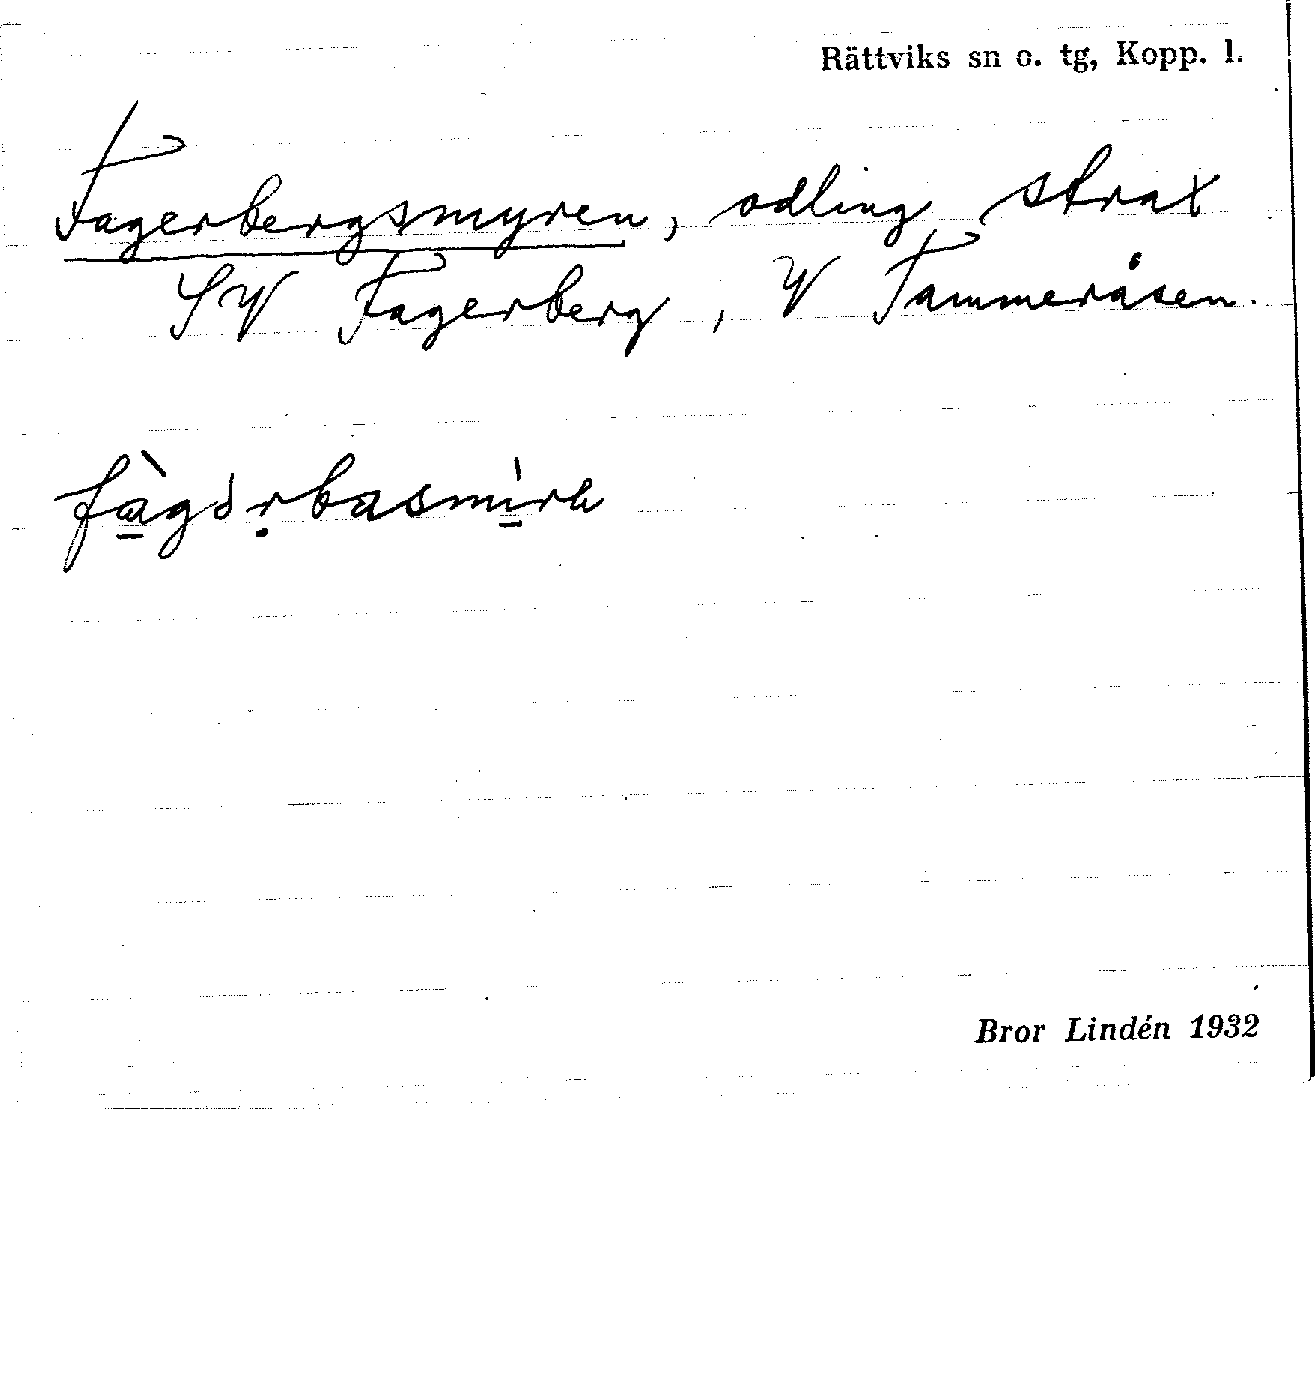 Rättviks sn o. tg, Kopp. l.
Fagerbergsmyren, odling strax
SV Fagerberg, V Tammeråsen.
Bror Lindén 1932